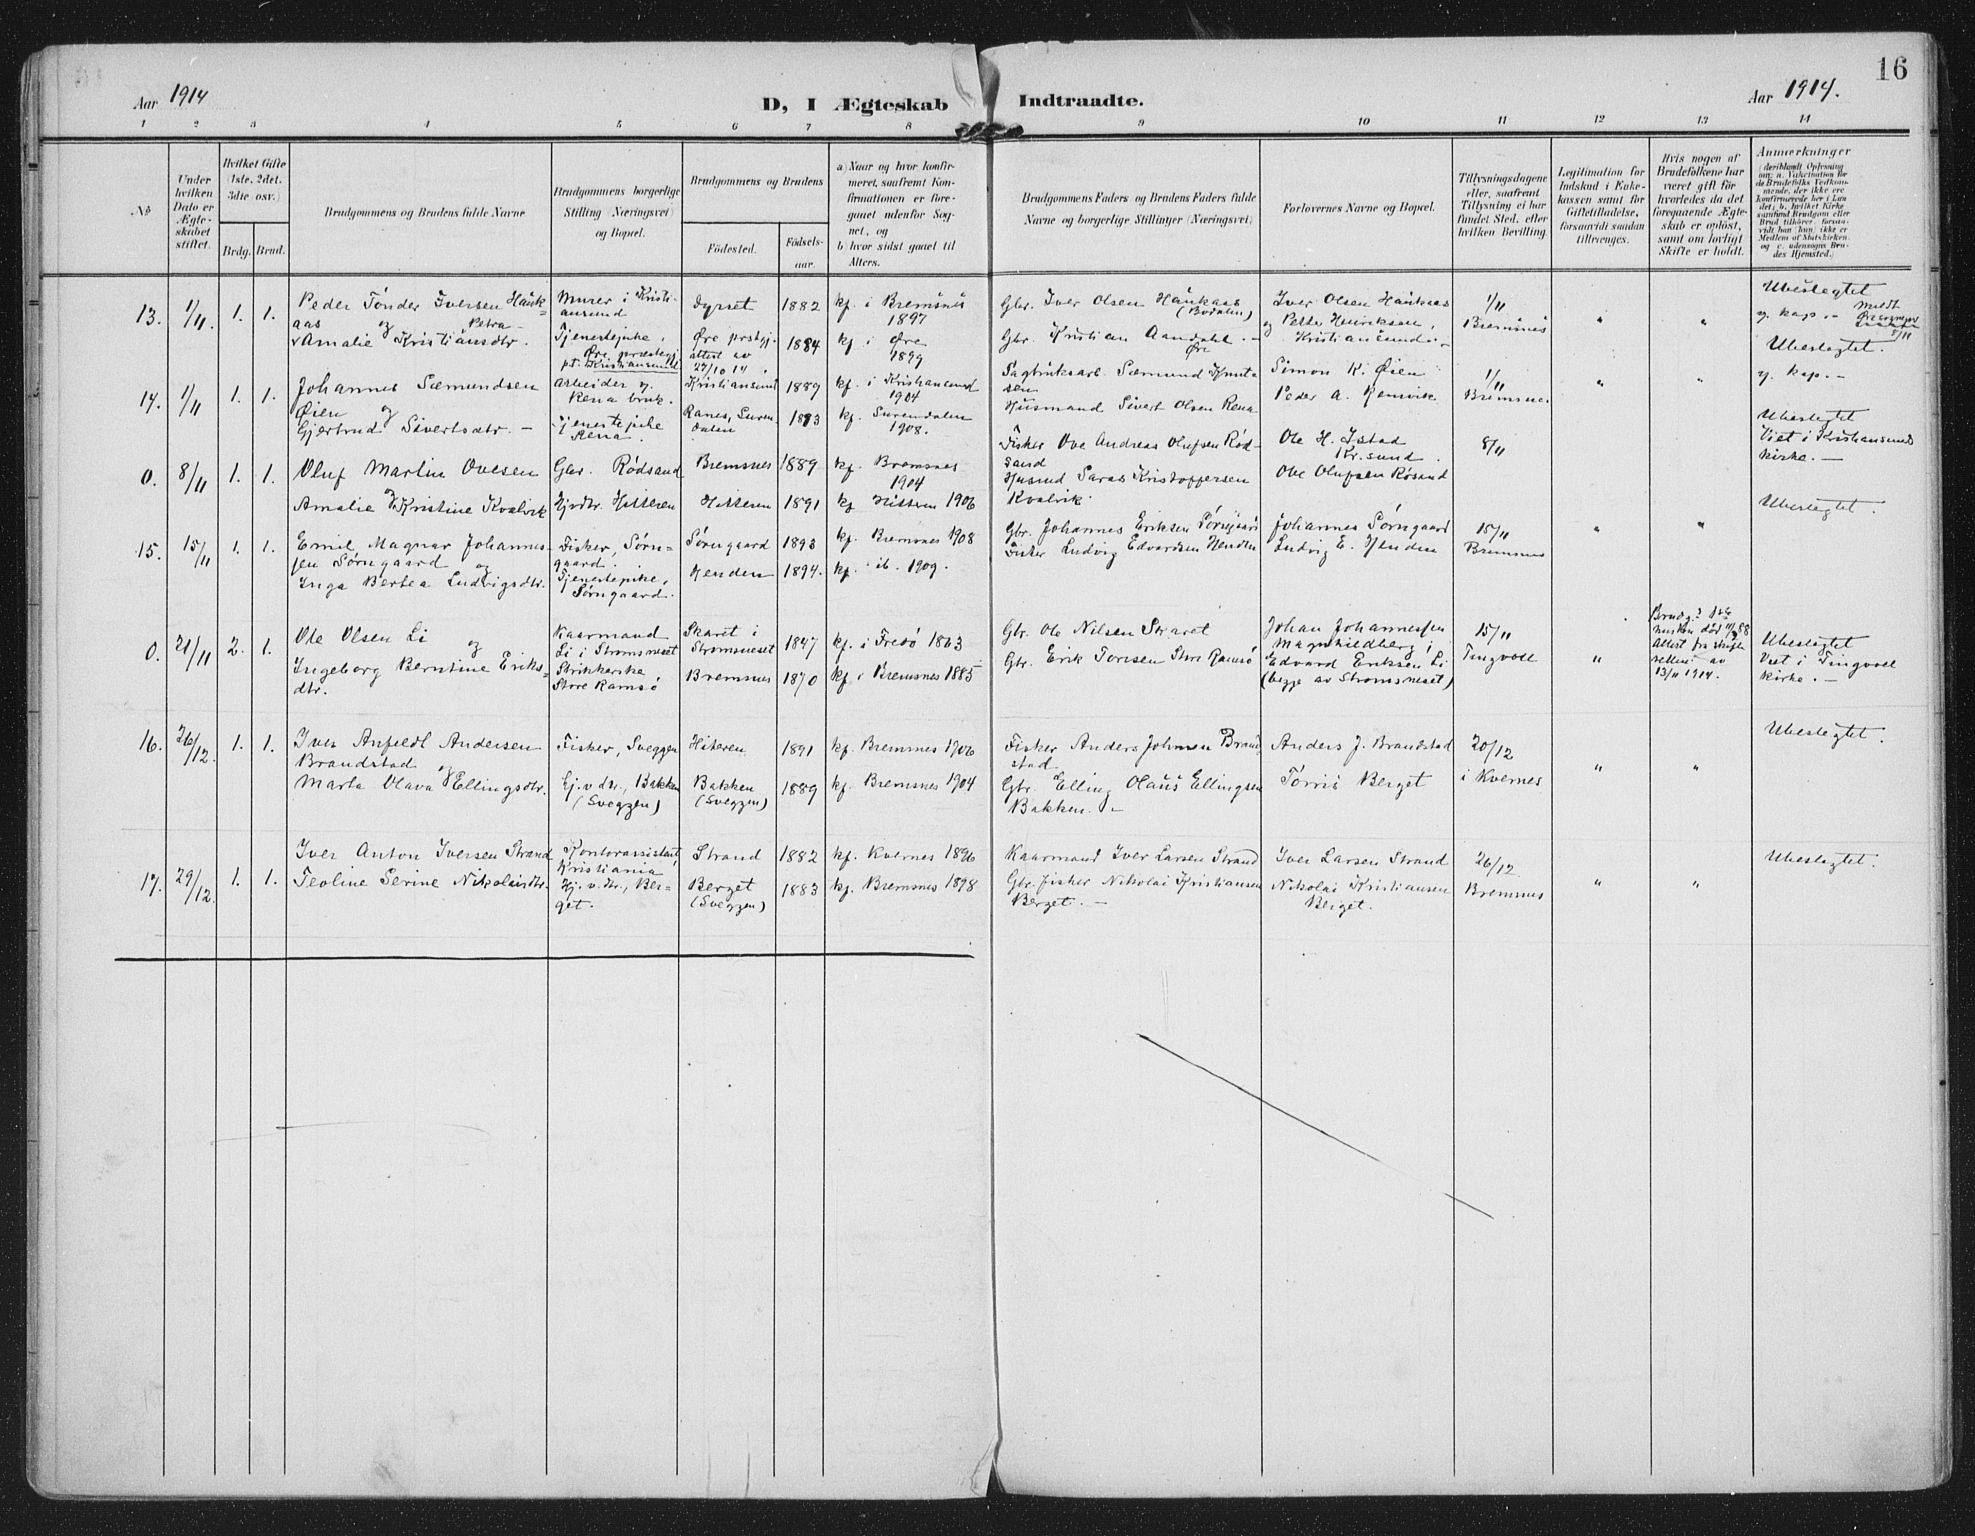 16
Aar 1914
D, I Ægteskab Indtraadte.
Aar 1914.
1 2 3 4 5 6 7 8 9 10 11 12 13 14
No
Under hvilken Dato er Ægteskabet stiftet.
Hvilket Gifte (1ste, 2det, 3die osv.)
Brdg. Brud.
Brudgommens og Brudens fulde Navne
Brudgommens borgerlige Stilling (Næringsvei) og Bopæl.
Brudgommens og Brudens
Fødested.
Fødselsaar.
a) Naar og hvor konfirmeret, saafremt Konfirmationen er foregaaet udenfor Sognet, og
b) hvor sidst gaaet til Alters.
Brudgommens Faders og Brudens Faders fulde Navne og borgerlige Stillinger (Næringsvei)
Forlovernes Navne og Bopæl.
Tillysningsdagene eller, saafremt Tillysning ei har fundet Sted, efter hvilken Bevilling.
Legitimation for Indskud i Enkekassen samt for Giftetilladelse, forsaavidt saadan tiltrænges.
Hvis nogen af Brudefolkene har været gift før hvorledes da det foregaaende Ægteskab er opløst, samt om lovligt Skifte er holdt.
Anmærkninger
(deriblandt Oplysning om: a. Vakcination for de Brudefolks Vedkommende, der ikke ere konfirmerede her i Landet; b. hvilket Kirkesamfund Brudgom eller Brud tilhører, forsaavidt han (hun) ikke er Medlem af Statskirken, og c. udensogns Brudes Hjemsted.)
13. 1/11. 1. 1.
Peder Tønder Iversen Haukaas og Petra Amalie Kristiansdtr.
Murer i Kristiansund
Tjenestepike, Øre præstegj. pt. Kristiansund
Dyrset 1882 kf. i Bremsnes 1897
Øre prstgj. attest av 29/10 14. 1884 kf. i Øre 1899
Gbr. Iver Olsen Haukaas (Bodalen)
Gbr. Kristian Aandahl. - Øre
Iver Olsen Haukaas og Petter Henriksen, Kristiansund. -
1/11 Bremsnes
" "
Ubeslegtet
y. kap. -
14. 1/11 1. 1.
Johannes Sæmundsen Øien og Gjertrud Sivertsdtr. -
Arbeider og Rena bruk.
Tjenestepike Rena.
Kristiansund 1889 kf. i Kristiansund 1904
Ranes, Surendalen 1883 kf. Surendalen 1908.
Sagbruksarb. Sæmund Knutsen
Husmand Sivert Olsen Rena
Simon K. Øien
Peder A. Remvik
1/11 Bremsnes
" "
Ubeslegtet.
y. kap. -
0. 8/11 1. 1.
Oluf Martin Ovesen og
Amalie Kristine Kvalvik
Gbr. Rødsand
Gjrdtr. Hitteren
Bremsnes 1889 kf. Bremsnes 1904
Hitteren 1891 kf. Hitteren 1906
Fisker Ove Andreas Olufsen Rødsand
Husmd Saras Kristoffersen Kvalvik.
Ole H. Istad Kr.sund.
Ove Olufsen Røsand
8/11
Ubeslegtet
Viet i Kristiansund kirke. -
15. 15/11 1. 1.
Emil Magnar Johannessen Sørngaard og
Inga Bertea Ludvigsdtr.
Fisker, Sørngaard.
Tjenestepike, Sørngaard.
Sørngaard 1893 kf. Bremsnes 1908
Henden 1894. kf. ib. 1909.
Gbr. Johannes Eriksen Sørngaard
Fisker Ludvig Edvardsen Henden
Johannes Sørngaard
Ludvig E. Henden
15/11 Bremsnes
" "
Ubeslegtet.
0. 21/11 2. 1.
Ole Olsen Li og
Ingeborg Berntine Eriksdtr.
Kaarmand Li i Strømsneset
Strikkerske, Store Ramsø
Skaret i Strømsneset 1847 kf. i Fredø 1863
Bremsnes 1870 kf. i Bremsnes 1885
Gbr. Ole Nilsen Skaret
Gbr. Erik Toresen Store Ramsø
Johan Johannessen Magnhildberg,
Edvard Eriksen Li
(begge av Strømsneset)
15/11 Tingvoll
"
Attest fra skifteretten av 13/11 1914.
Ubeslegtet
Viet i Tingvoll kirke. -
16. 26/12. 1. 1.
Iver Anfeldt Andersen Brandstad og
Marta Olava Ellingsdtr.
Fisker, Sveggen
Gj.v.dtr., Bakken (Sveggen)
Hiteren 1891 kf. Bremsnes 1906
Bakken (Sveggen) 1889 kf. Bremsnes 1904
Fisker Anders Johnsen Brandstad
Gbr. Elling Olaus Ellingsen Bakken. -
Anders J. Brandstad
Tørris Berget
20/12 i Kvernes
" "
Ubeslegtet.
17. 29/12. 1. 1.
Iver Anton Iversen Strand
Teoline Serine Nikolaisdtr.
Kontorassistent, Kristiania
Hj.v.dtr., Berget.
Strand 1882 kf. Kvernes 1896
Berget (Sveggen) 1883 kf. Bremsnes 1898
Kaarmand Iver Larsen Strand
Gbr. fisker Nikolai Kristiansen Berget. -
Iver Larsen Strand
Nikolai Kristiansen Berget.
26/12. Bremsnes
" "
Ubeslegtet.